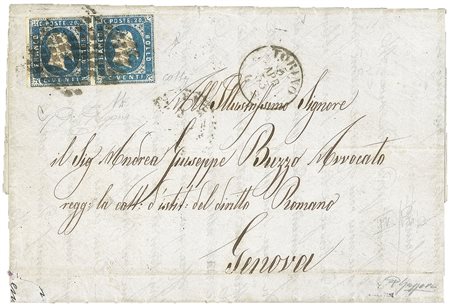 C. POSTE. 20. BOLLO VENTI C. POSTE. 20. BOLLO VENTI
TORINO
All'Illustrissimo Signore
il Sig Andrea Giuseppe Buzzo Avvocato
regg: la catt: d'istit: del diritto Romano
Genova